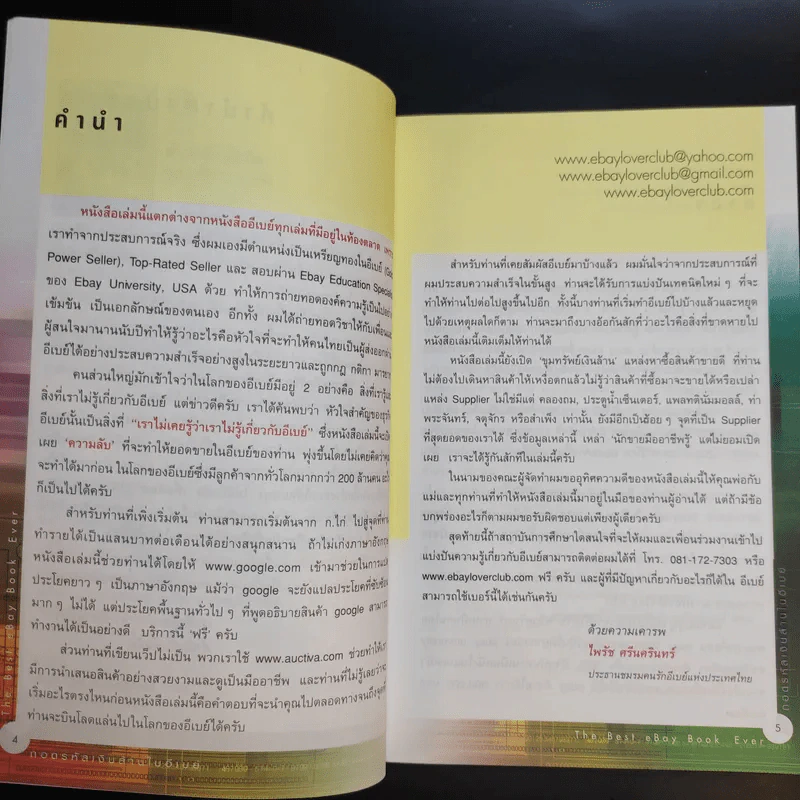 คำนำ
หนังสือเล่มนี้แตกต่างจากหนังสืออีเบย์ทุกเล่มที่มีอยู่ในท้องตลาด เพราะ
เราทำจากประสบการณ์จริง ซึ่งผมเองมีตำแหน่งเป็นเหรียญทองในอีเบย์
Power Seller), Top-Rated Seller และ สอบผ่าน Ebay Education
ของ Ebay University, USA ด้วย ทำให้การถ่ายทอดองค์ความรู้เป็นไปอย่าง
เข้มข้น เป็นเอกลักษณ์ของตนเอง อีกทั้ง ผมได้ถ่ายทอดวิชาให้กับเพื่อน
ผู้สนใจมานานนับปีทำให้รู้ว่าอะไรคือหัวใจที่จะทำให้คนไทยเป็นผู้ส่งออก
อีเบย์ได้อย่างประสบความสำเร็จอย่างสูงในระยะยาวและถูกกฎ กติกา
คนส่วนใหญ่มักเข้าใจว่าในโลกของอีเบย์มีอยู่ 2 อย่างคือ สิ่งที่เรารู้
สิ่งที่เราไม่รู้เกี่ยวกับอีเบย์ แต่ข่าวดีครับ เราได้ค้นพบว่า หัวใจสำคัญของ
อีเบย์นั้นเป็นสิ่งที่ "เราไม่เคยรู้ว่าเราไม่รู้เกี่ยวกับอีเบย์" ซึ่งหนังสือเล่มนี้จะ
เผย 'ความลับ' ที่จะทำให้ยอดขายในอีเบย์ของท่าน พุ่งขึ้นโดยไม่เคยคิดว่า
จะทำได้มาก่อน ในโลกของอีเบย์ซึ่งมีลูกค้าจากทั่วโลกมากกว่า 200 ล้านคน
ก็เป็นไปได้ครับ
สำหรับท่านที่เพิ่งเริ่มต้น ท่านสามารถเริ่มต้นจาก ก.ไก่ ไปสู่จุดที่ท่าน
ทำรายได้เป็นแสนบาทต่อเดือนได้อย่างสนุกสนาน ถ้าไม่เก่งภาษาอังกฤษ
หนังสือเล่มนี้ช่วยท่านได้โดยให้ www.google.com เข้ามาช่วยในการ
ประโยคยาว ๆ เป็นภาษาอังกฤษ แม้ว่า google จะยังแปลประโยคที่ซับซ้อน
มาก ๆ ไม่ได้ แต่ประโยคพื้นฐานทั่วไป ๆ ที่พูดอธิบายสินค้า google สามารถ
ทำงานได้เป็นอย่างดี บริการนี้ 'ฟรี' ครับ
ส่วนท่านที่เขียนเว็ปไม่เป็น พวกเราใช้ www.auctiva.com ช่วยทำให้
มีการนำเสนอสินค้าอย่างสวยงามและดูเป็นมืออาชีพ และท่านที่ไม่รู้เลยว่าจะ
เริ่มอะไรตรงไหนก่อนหนังสือเล่มนี้คือคำตอบที่จะนำคุณไปตลอดทางจนถึงจุดที่
ท่านจะบินโลดแล่นไปในโลกของอีเบย์ได้ครับ
The Best eBay Book Ever
4
ถอดรหัสเงินล้านในอีเบย์
www.ebayloverclub@yahoo.com
www.ebayloverclub@gmail.com
www.ebayloverclub.com
สำหรับท่านที่เคยสัมผัสอีเบย์มาบ้างแล้ว ผมมั่นใจว่าจากประสบการณ์ที่
ผมประสบความสำเร็จในขั้นสูง ท่านจะได้รับการแบ่งปันเทคนิคใหม่ ๆ ที่จะ
ทำให้ท่านไปต่อไปสูงขึ้นไปอีก ทั้งนี้บางท่านที่เริ่มทำอีเบย์ไปบ้างแล้วและหยุด
ไปด้วยเหตุผลใดก็ตาม ท่านจะมาถึงบางอ้อกันสักทีว่าอะไรคือสิ่งที่ขาดหายไป
หนังสือเล่มนี้เติมเต็มให้ท่านได้
หนังสือเล่มนี้ยังเปิด 'ขุมทรัพย์เงินล้าน' แหล่งหาซื้อสินค้าขายดี ที่ท่าน
ไม่ต้องไปเดินหาสินค้าให้เหงื่อตกแล้วไม่รู้ว่าสินค้าที่ซื้อมาจะขายได้หรือเปล่า
แหล่ง Supplier ไม่ใช่มีแต่ คลองถม, ประตูน้ำเซ็นเตอร์, แพลทตินั่มมอลล์, ท่า
พระจันทร์, จตุจักร หรือสำเพ็ง เท่านั้น ยังมีอีกเป็นฮ้อย ๆ จุดที่เป็น Supplier
ที่สุดยอดของเราได้ ซึ่งข้อมูลเหล่านี้ เหล่า 'นักขายมืออาชีพรู้' แต่ไม่ยอมเปิด
เผย เราจะได้รู้กันสักทีในเล่มนี้ครับ
ในนามของคณะผู้จัดทำผมขออุทิศความดีของหนังสือเล่มนี้ให้คุณพ่อกับ
แม่และทุกท่านที่ทำให้หนังสือเล่มนี้มาอยู่ในมือของท่านผู้อ่านได้ แต่ถ้ามีข้อ
บกพร่องอะไรก็ตามผมขอรับผิดชอบแต่เพียงผู้เดียวครับ
สุดท้ายนี้ถ้าสถาบันการศึกษาใดสนใจที่จะให้ผมและเพื่อนร่วมงานเข้าไป
แบ่งปันความรู้เกี่ยวกับอีเบย์สามารถติดต่อผมได้ที่ โทร. 081-172-7303 หรือ
www.ebayloverclub.com ฟรี ครับ และผู้ที่มีปัญหาเกี่ยวกับอะไรก็ได้ใน อีเบย์
สามารถใช้เบอร์นี้ได้เช่นกันครับ
ด้วยความเคารพ
ไพรัช ศรีนครินทร์
ประธานชมรมคนรักอีเบย์แห่งประเทศไทย
ถอดรหัสเงินล้านในอีเบย์
5
The Best eBay Book Ever